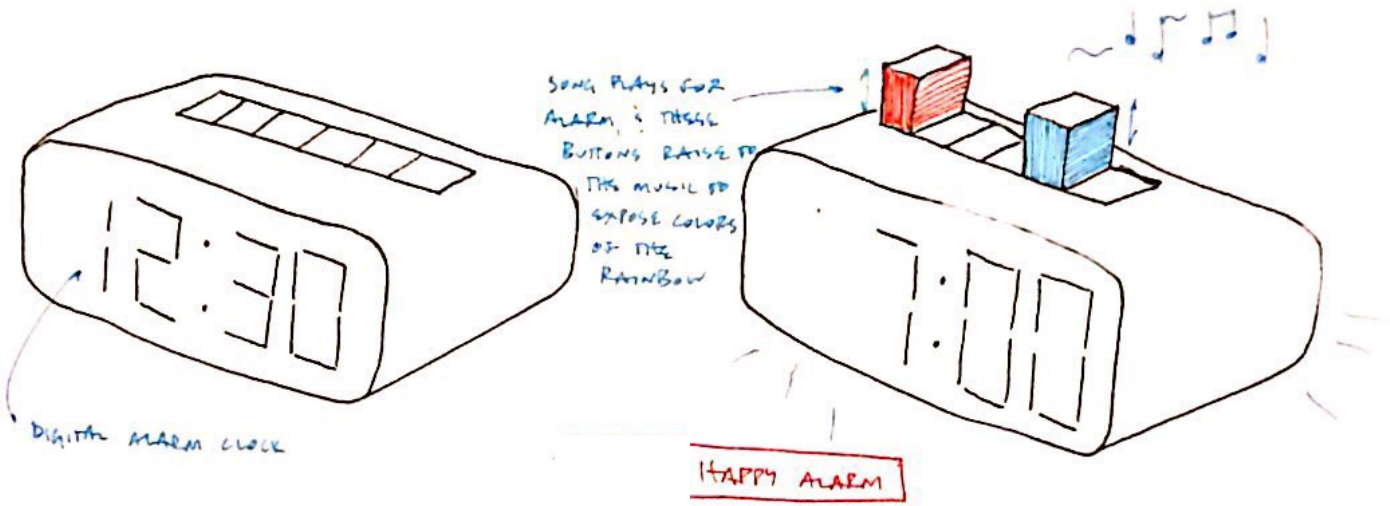 12:30
DIGITAL ALARM CLOCK
SONG PLAYS FOR
ALARM & THESE
BUTTONS RAISE TO
THE MUSIC TO
EXPOSE COLORS
OF THE
RAINBOW
7:00
HAPPY ALARM